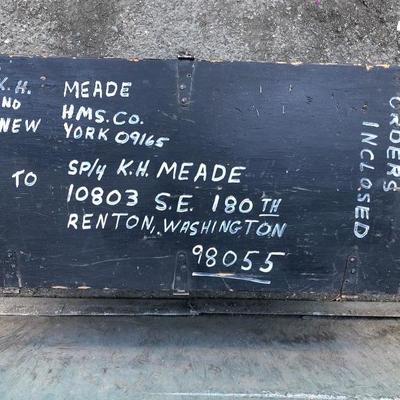 K.H. MEADE
ND HMS. CO.
NEW YORK 09165
TO SP/4 K.H. MEADE
10803 S.E. 180 TH
RENTON, WASHINGTON
98055
ORDERS
INCLOSED